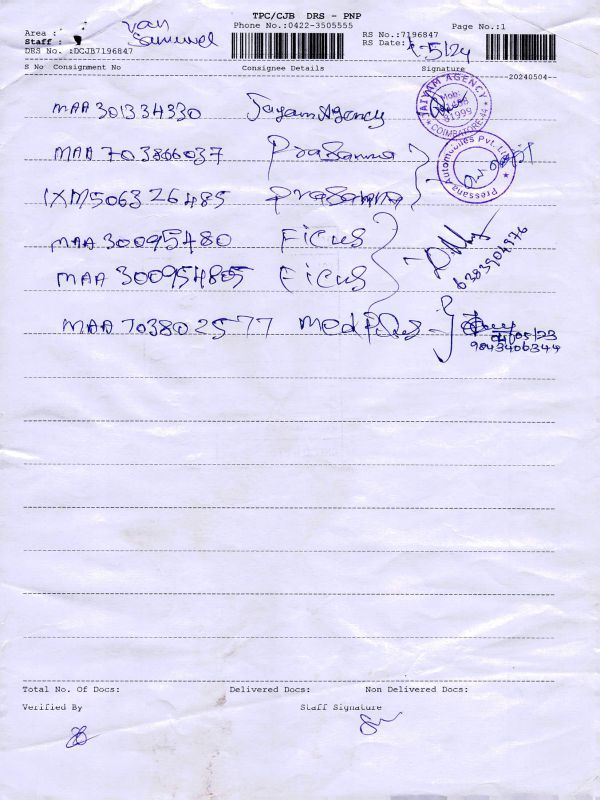 TPC/CJB DRS - PNP
Phone No.:0422-3505555
Page No.:1
Area :
Van
Staff :
Samuvel
RS No.:7196847
RS Date: 5/24
DRS No. :DCJB7196847
S No Consignment No Consignee Details Signature
20240504
MAA 301334330 Jayam Agency
JAIYAM AGENCY
COIMBATORE-44
MAA 703866037 Prasanna
Pressana Automobiles Pvt. Ltd
IXM506326485 Prasanna
MAA 30095480 Ficus
6285904976
MAA 300954805 Ficus
MAA 703802577 Medplus
04/05/23
9843406344
Total No. Of Docs: Delivered Docs: Non Delivered Docs:
Verified By Staff Signature